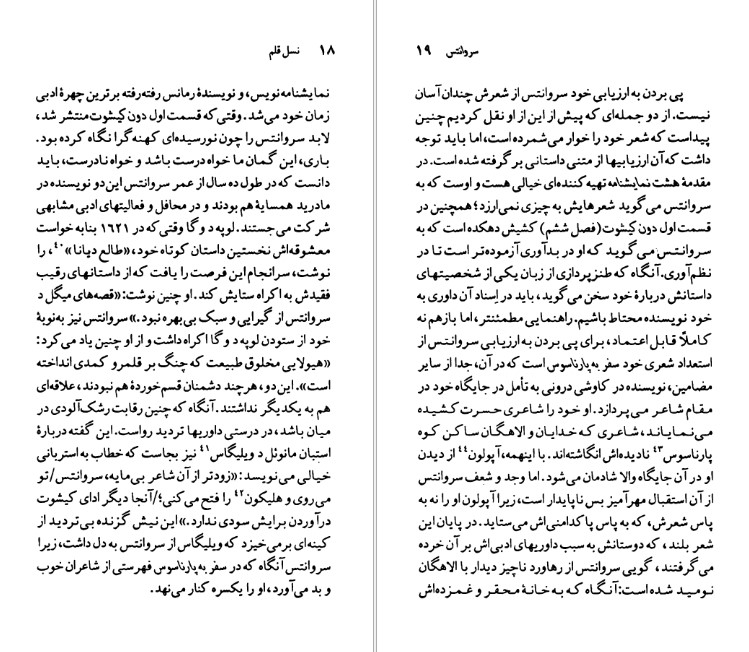 ۱۸ نسل قلم
نمایشنامه‌نویس، و نویسندهٔ رمانس رفته‌رفته برترین چهرهٔ ادبی
زمان خود می‌شد. وقتی‌که قسمت اول دون کیشوت منتشر شد،
لابد سروانتس را چون نورسیده‌ای کهنه‌گرا نگاه کرده بود.
باری، این گمان ما خواه درست باشد و خواه نادرست، باید
دانست که در طول ده سال از عمر سروانتس این دو نویسنده در
مادرید همسایهٔ هم بودند و در محافل و فعالیتهای ادبی مشابهی
شرکت می‌جستند. لوپه د وگا وقتی‌که در ۱۶۲۱ بنا به خواست
معشوقه‌اش نخستین داستان کوتاه خود، «طالع دیانا»۴۰، را
نوشت، سرانجام این فرصت را یافت که از داستانهای رقیب
فقیدش به اکراه ستایش کند. او چنین نوشت: «قصه‌های میگل د
سروانتس از گیرایی و سبک بی‌بهره نبود.» سروانتس نیز به‌نوبهٔ
خود از ستودن لوپه د وگا اکراه داشت و از او چنین یاد می‌کرد:
«هیولایی مخلوق طبیعت که چنگ بر قلمرو کمدی انداخته
است». این دو، هرچند دشمنان قسم‌خوردهٔ هم نبودند، علاقه‌ای
هم به یکدیگر نداشتند. آنگاه که چنین رقابت رشک‌آلودی در
میان باشد، در درستی داوریها تردید رواست. این گفته دربارهٔ
استبان مانوئل د ویلیگاس۴۱ نیز بجاست که خطاب به استربانی
خیالی می‌نویسد: «زودتر از آن شاعر بی‌مایه، سروانتس/تو
می‌روی و هلیکون۴۲ را فتح می‌کنی؛/آنجا دیگر ادای کیشوت
درآوردن برایش سودی ندارد.» این نیش گزنده بی‌تردید از
کینه‌ای برمی‌خیزد که ویلیگاس از سروانتس به دل داشت، زیرا
سروانتس آنگاه که در سفر به پارناسوس فهرستی از شاعران خوب
و بد می‌آورد، او را یکسره کنار می‌نهد.
سروانتس ۱۹
پی بردن به ارزیابی خود سروانتس از شعرش چندان آسان
نیست. از دو جمله‌ای که پیش از این از او نقل کردیم چنین
پیداست که شعر خود را خوار می‌شمرده است، اما باید توجه
داشت که آن ارزیابیها از متنی داستانی برگرفته شده است. در
مقدمهٔ هشت نمایشنامه تهیه‌کننده‌ای خیالی هست و اوست که به
سروانتس می‌گوید شعرهایش به چیزی نمی‌ارزد؛ همچنین در
قسمت اول دون کیشوت (فصل ششم) کشیش دهکده است که به
سروانتس می‌گوید که او در بدآوری آزموده‌تر است تا در
نظم‌آوری. آنگاه که طنزپردازی از زبان یکی از شخصیتهای
داستانش دربارهٔ خود سخن می‌گوید، باید در اِسناد آن داوری به
خود نویسنده محتاط باشیم. راهنمایی مطمئنتر، اما بازهم نه
کاملاً قابل اعتماد، برای پی بردن به ارزیابی سروانتس از
استعداد شعری خود سفر به پارناسوس است که در آن، جدا از سایر
مضامین، نویسنده در کاوشی درونی به تأمل در جایگاه خود در
مقام شاعر می‌پردازد. او خود را شاعری حسرت کشیده
می‌نمایاند، شاعری که خدایان و الاهگان ساکن کوه
پارناسوس۴۳ نادیده‌اش انگاشته‌اند. با اینهمه، آپولون۴۴ از دیدن
او در آن جایگاه والا شادمان می‌شود. اما وجد و شعف سروانتس
از آن استقبال مهرآمیز بس ناپایدار است، زیرا آپولون او را نه به
پاس شعرش، که به پاس پاکدامنی‌اش می‌ستاید. در پایان این
شعر بلند، که دوستانش به سبب داوریهای ادبی‌اش بر آن خرده
می‌گرفتند، گویی سروانتس از رهاورد ناچیز دیدار با الاهگان
نومید شده است: آنگاه که به خانهٔ محقر و غمزده‌اش